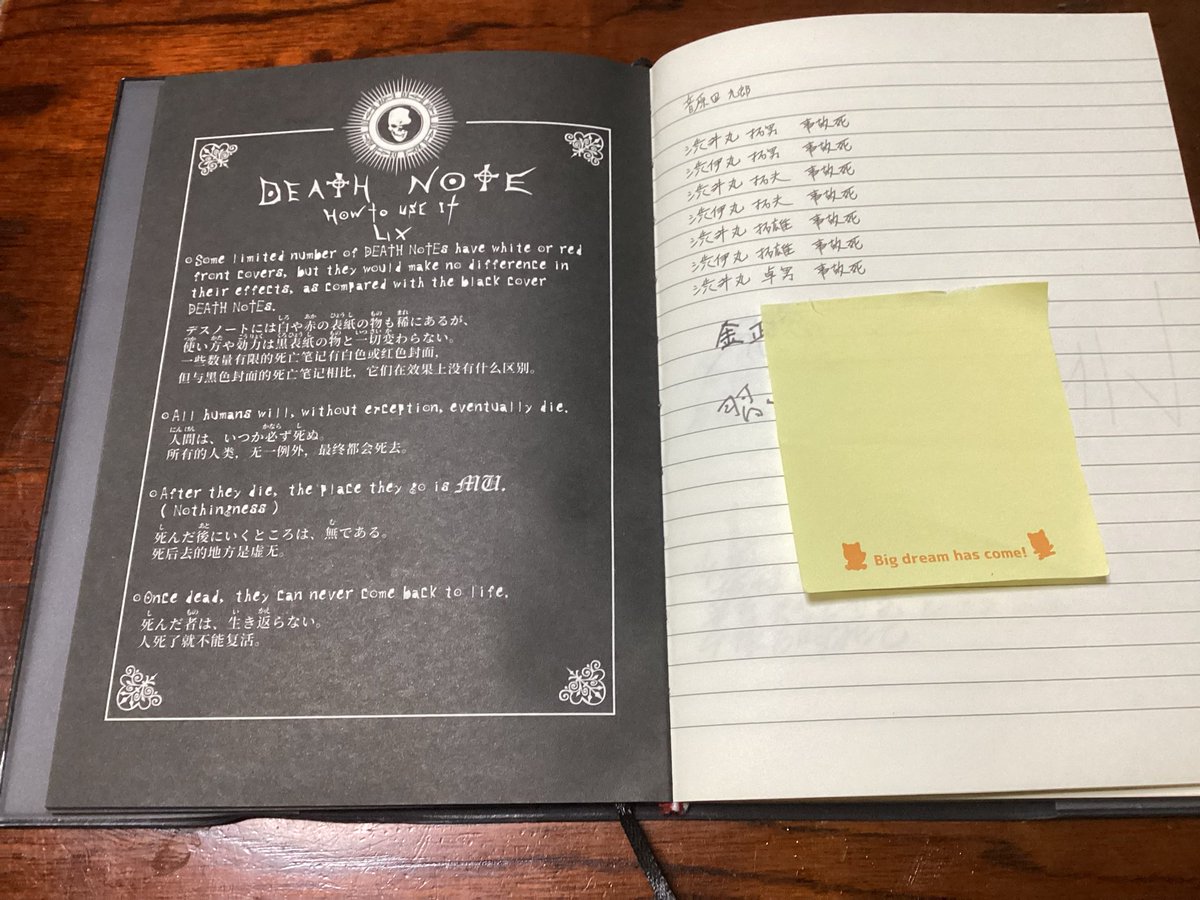 DEATH NOTE
How to use it
LIX
Some limited number of DEATH NOTEs have white or red
front covers, but they would make no difference in
their effects, as compared with the black cover
DEATH NOTEs.
デスノートには白や赤の表紙の物も稀にあるが、
使い方や効力は黒表紙の物と一切変わらない。
一些数量有限的死亡笔记有白色或红色封面，
但与黑色封面的死亡笔记相比，它们在效果上没有什么区别。
All humans will, without exception, eventually die.
人間は、いつか必ず死ぬ。
所有的人类，无一例外，最终都会死去。
After they die, the place they go is MU.
(Nothingness)
死んだ後にいくところは、無である。
死后去的地方是虚无。
Once dead, they can never come back to life.
死んだ者は、生き返らない。
人死了就不能复活。
音原田 九郎
渋井丸 拓男 事故死
渋伊丸 拓男 事故死
渋井丸 拓夫 事故死
渋伊丸 拓夫 事故死
渋井丸 拓雄 事故死
渋伊丸 拓雄 事故死
渋井丸 卓男 事故死
金正
Big dream has come!